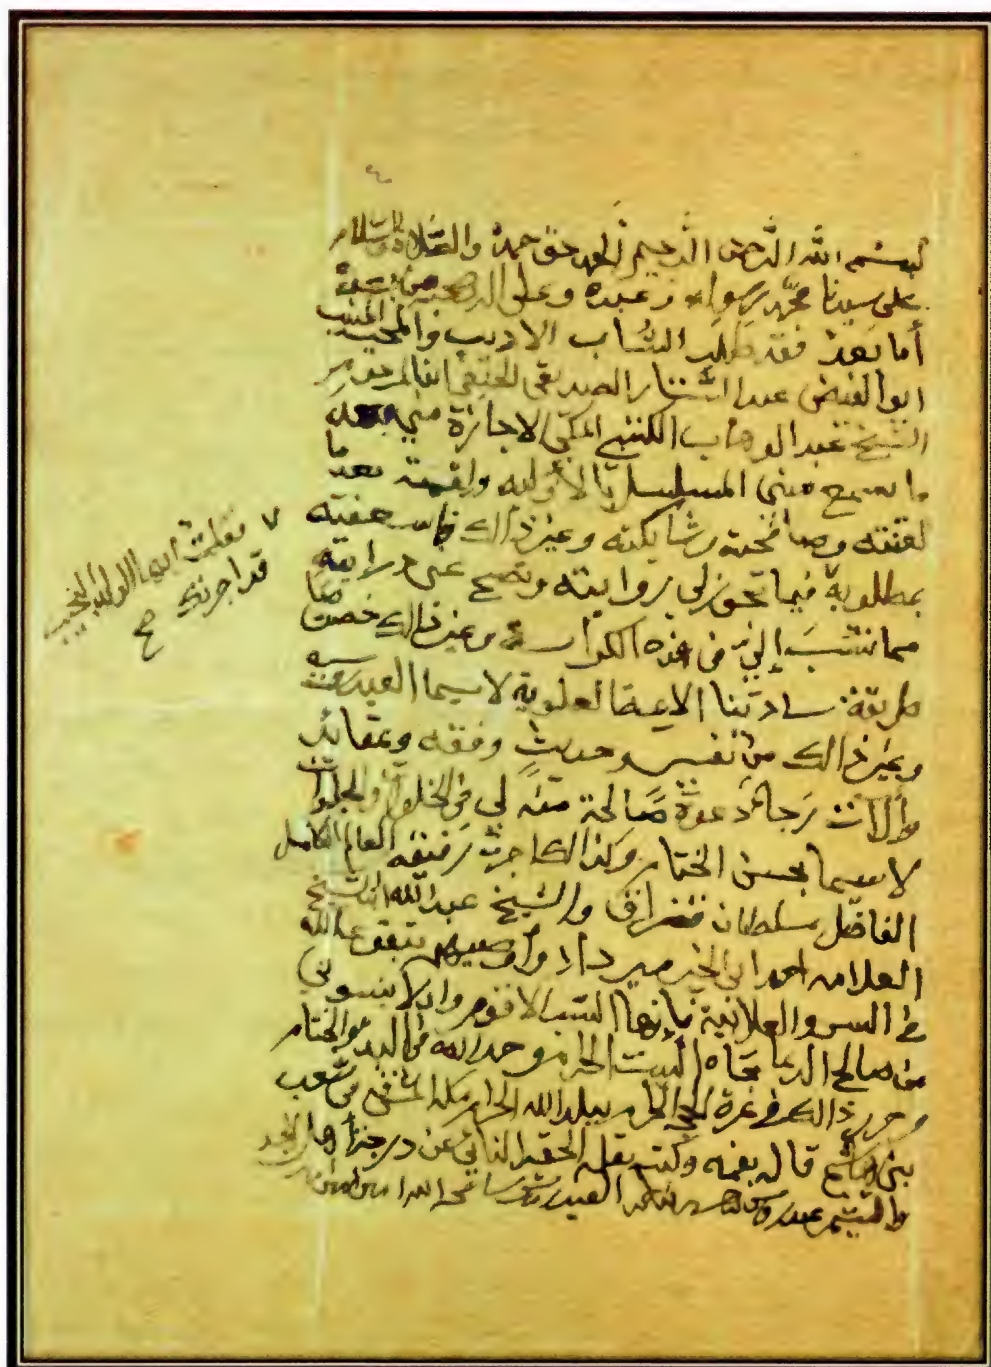 بسم الله الرحمن الرحيم الحمد لله حق حمده والصلاة والسلام
على سيدنا محمد رسوله وعبده وعلى اله وصحبه من بعده
أما بعد فقد طلب الشاب الاديب والمحب المنيب
ابو الفيض عبد الستار الصديقي الحنفي ابن المرحوم
الشيخ عبد الوهاب الكتبي المكي الاجازة مني بعد
ما سمع مني المسلسل بالأولية والقمته بعد ما
لقنته وصافحته وشابكته وغير ذالك فاسعفته
بمطلوبه فيما تجوز لي روايته وتصح عني درايته
مما نسب إلي في هذه الكراسة وغير ذالك خصوصا
طريقة سادتنا الايمة العلوية لاسيما العيدروسية
وغير ذالك من تفسير وحديث وفقه وعقائد
وآلات رجاء دعوة صالحة منه لي في الخلوات والجلوات
لاسيما بحسن الختام وكذالك اجزت رفيقه العالم الكامل
الفاضل سلطان والشيخ عبد الله ابن الشيخ
العلامه احمد ابي الخير ميرداد وأوصيهم بتقوى الله
في السر والعلانية فإنها السبب الاقوم وان لا ينسوني
من صالح الدعا تجاه البيت الحرام وحدانه في البدء والختام
وحرر ذالك في غرة الحجه الحرام ببلد الله الحرام مكة المشرفه في شعب
بني هاشم قاله بفمه وكتبه بقلمه الحقير النائي عن درجة أهل المجد
والشيم عيدروس العيدروس سامحه الله امين
فعلمت ايها الولد النجيب
قد اجزتك صح